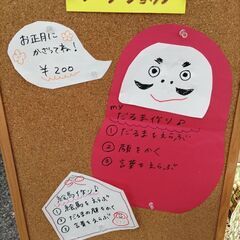 お正月に
かざってね!
¥200
my
だるま作り♪
①だるまをえらぶ
②顔をかく
③言葉をえらぶ
絵馬作り♪
①絵馬をえらぶ
②だるまの顔をかく
③言葉をえらぶ